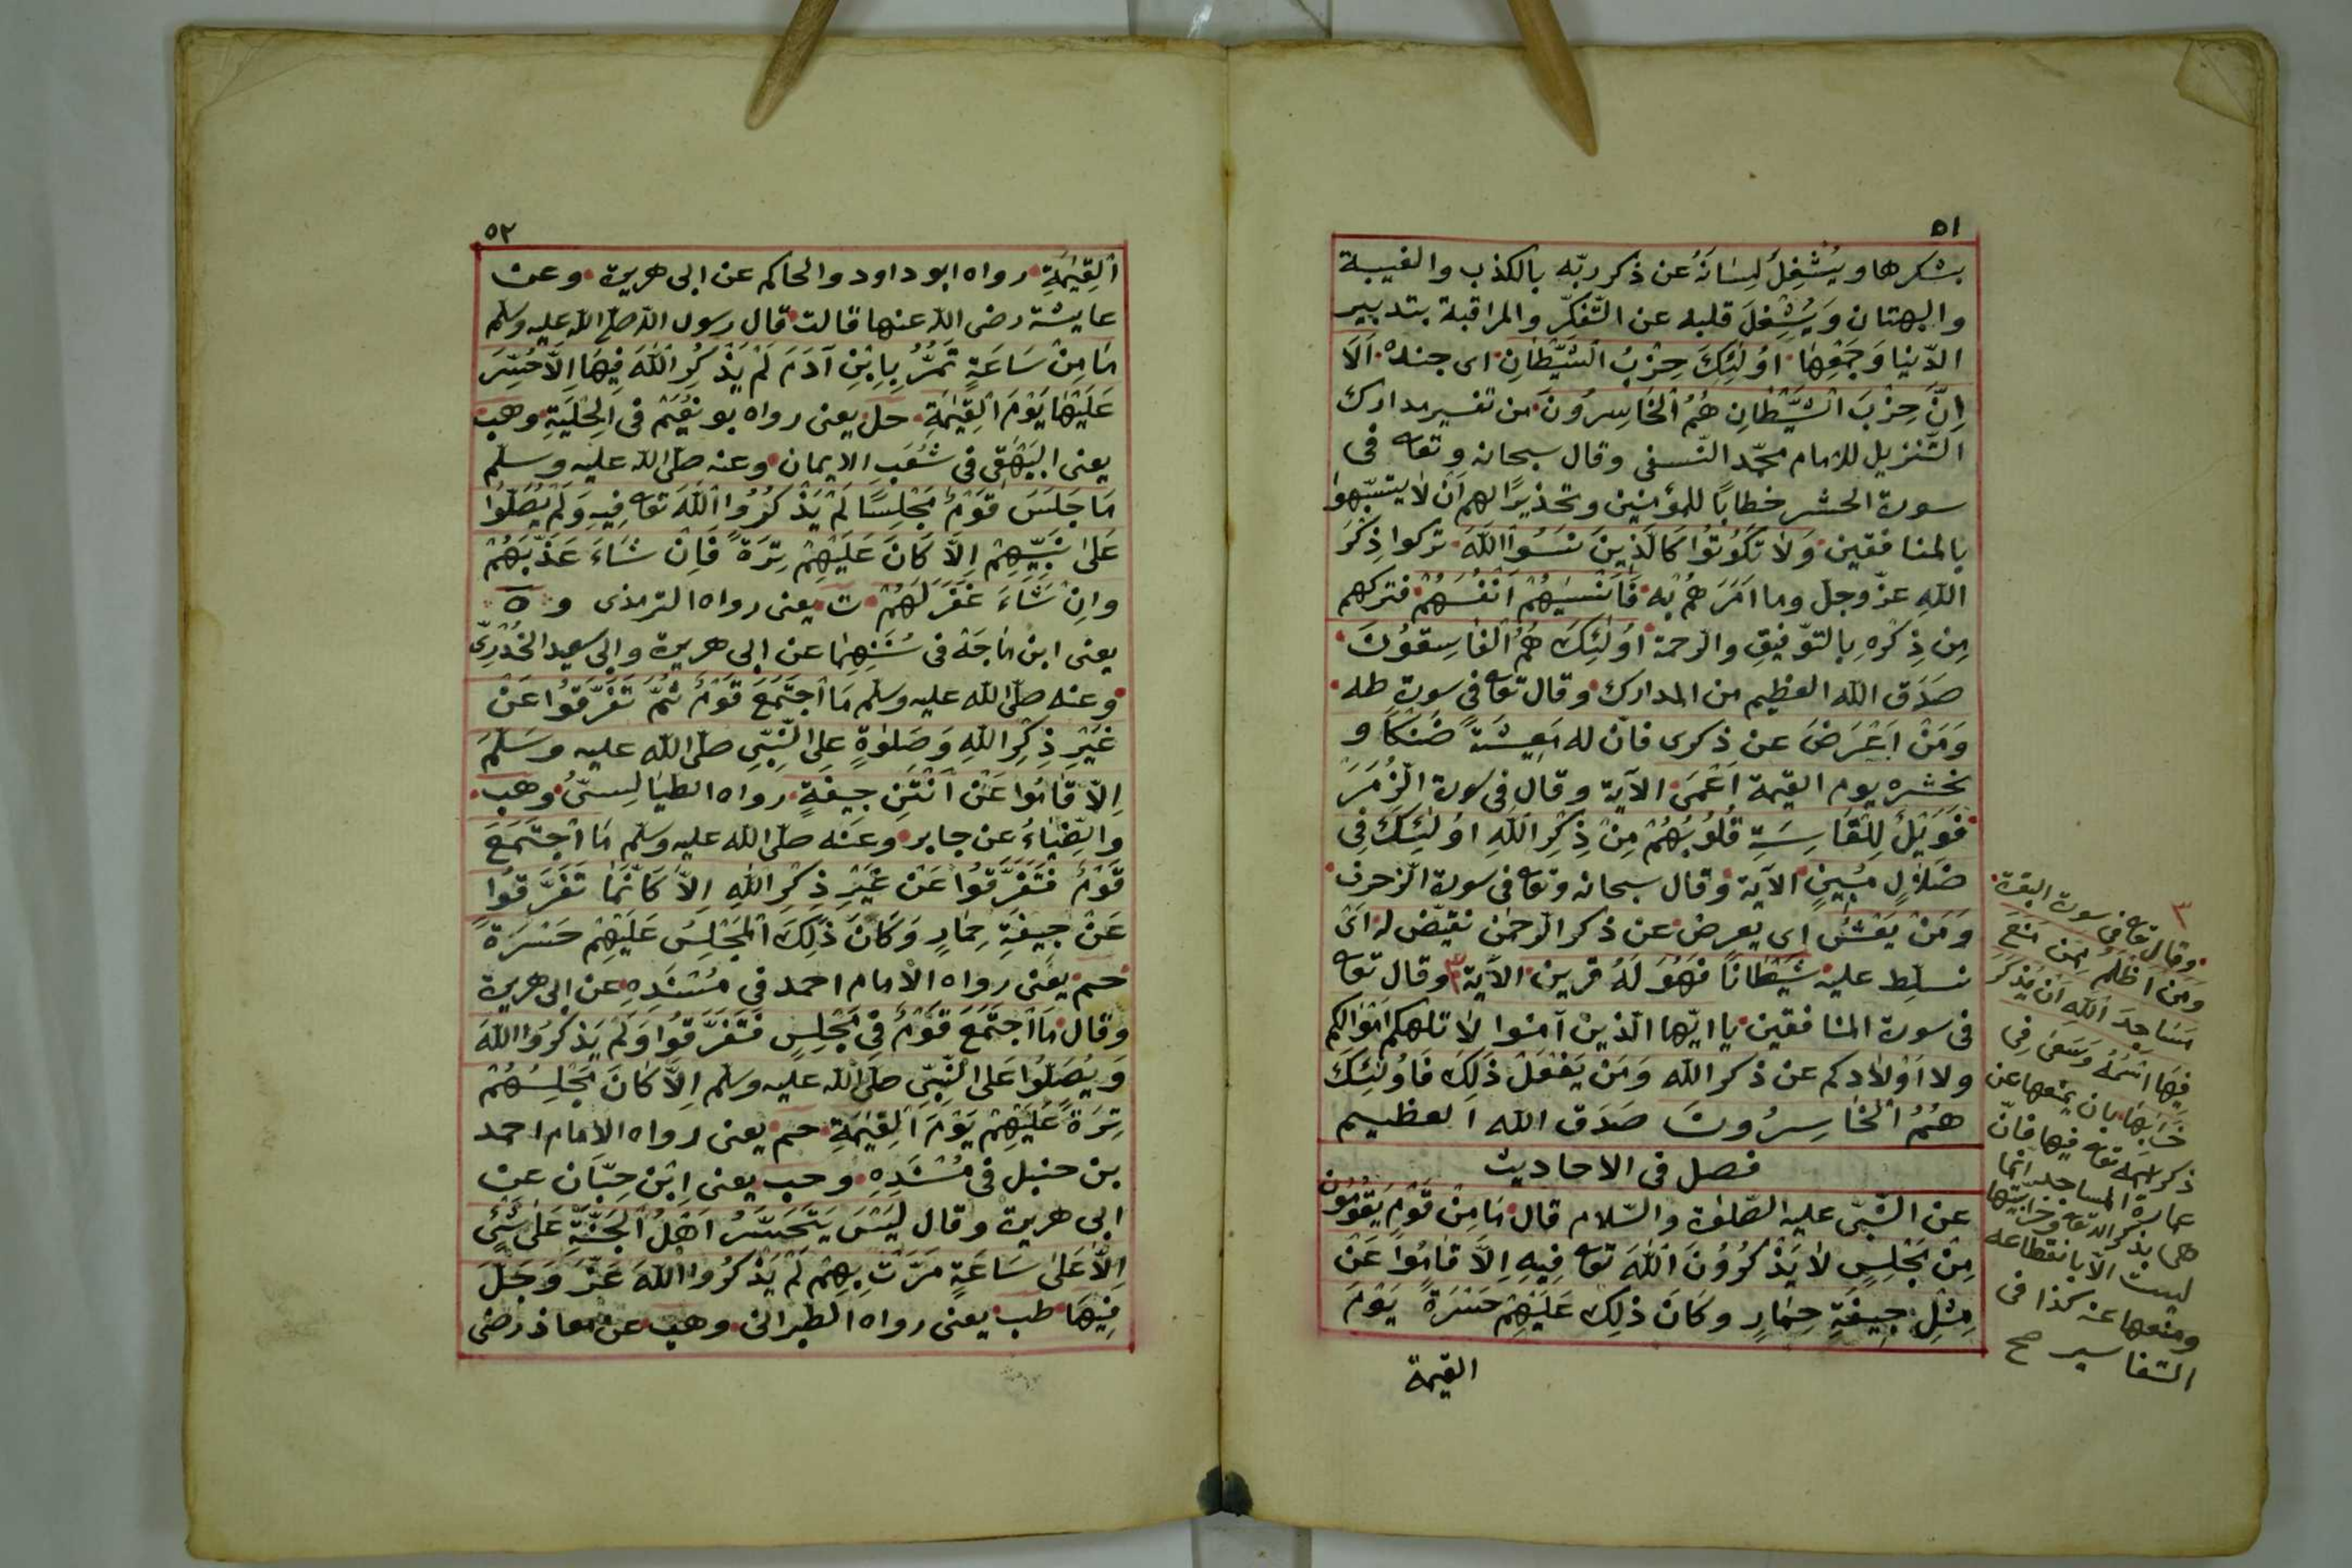 ٥١
بشكرها ويُشْغِلُ لِسَانَهُ عن ذكر ربّه بالكذب والغيبة
والبهتان وَيُشْغِلَ قلبه عن التّفكّر والمراقبة بتدبير
الدّنيا وَجَمْعِهَا اُولٰئِكَ حِزْبُ الشَّيْطَانِ اى جنده اَلَا
اِنَّ حِزْبَ الشَّيْطَانِ هُمُ الْخَاسِرُونَ من تفسير مدارك
التّنزيل للامام محمّد النّسفى وقال سبحانه وتعا فى
سورة الحشر خطابًا للمؤمنين وتحذيرًا لهم اَنْ لا يتشبّهوا
بالمنافقين وَلَا تَكُونُوا كَالَّذِينَ نَسُوا اللّٰهَ تركوا ذِكْرَ
اللّٰهِ عزّ وجلّ وما اَمَرَهُمْ به فَاَنْسٰيهُمْ اَنْفُسَهُمْ فتركهم
مِن ذِكْرِهِ بالتّوفيقِ والرّحمة اُولٰئِكَ هُمُ الْفَاسِقُونَ
صَدَقَ اللّٰه العظيم من المدارك وقال تعا فى سورة طه
وَمَنْ اَعْرَضَ عن ذكرى فاِنّ له مَعِيشَةً ضَنْكًا و
نحشره يوم القيٰمة اَعْمَى الآية وقال فى سورة الزُّمَرَ
فَوَيْلٌ لِلْقَاسِيَةِ قُلُوبُهُمْ مِنْ ذِكْرِ اللّٰهِ اُولٰئِكَ فِى
ضَلَالٍ مُبِينٍ الآية وقال سبحانه وتعا فى سورة الزّخرف
وَمَنْ يَعْشُ اى يعرض عن ذكر الرّحمٰن نقيّض له اَىْ
نسلِّط عليه شَيْطَانًا فَهُوَ لَهُ قرين الآية ٣ وقال تعا
فى سورة المنافقين يا ايّها الّذين آمنوا لا تلهكم اَمْوَالكم
ولا اَوْلَادكم عن ذكر اللّٰه وَمَنْ يَفْعَلْ ذَلِكَ فَاُولٰئِكَ
هُمُ الْخَاسِرُونَ صَدَقَ اللّٰه العظيم
فصل فى الاحاديث
عن النّبىّ عليه الصّلوة والسّلام قال مَا مِنْ قَوْمٍ يَقُومُونَ
مِنْ مَجْلِسٍ لَا يَذْكُرُونَ اللّٰهَ تعا فِيهِ اِلَّا قَامُوا عَنْ
مِثْلِ جِيفَةِ حِمَارٍ وَكَانَ ذٰلِكَ عَلَيْهِمْ حَسْرَةً يَوْمَ
القيٰمة
٣
وقال تعا فى سورة البقرة
وَمَنْ اَظْلَمُ مِمَّن مَنَعَ
مَسَاجِدَ اللّٰهِ اَنْ يُذْكَرَ
فِيهَا اسْمُهُ وَسَعٰى فِى
خَرَابِهَا بان يمنعها عن
ذكر اسمه تعا فيها فانّ
عمارة المساجد انّما
هى بذكر اللّٰه تعا وخرابيّتها
ليست الّا بانقطاعه
ومنعها عنه كذا فى
التفاسير صح
٥٢
الْقِيٰمَةِ رواه ابو داود والحاكم عن ابى هريرة وعن
عايشة رضى اللّٰه عنها قالت قال رسول اللّٰه صلّى اللّٰه عليه وسلم
مَا مِنْ سَاعَةٍ تَمُرُّ بِاِبْنِ آدَمَ لَمْ يَذْكُرِ اللّٰهَ فِيهَا اِلَّا حُسِّرَ
عَلَيْهَا يَوْمَ الْقِيٰمَةِ حل يعنى رواه بو نُعَيْم فى الْحِلْيَةِ وهب
يعنى البَيْهَقى فى شُعَبِ الايمان وعنه صلّى اللّٰه عليه وسلّم
مَا جَلَسَ قَوْمٌ مَجْلِسًا لَمْ يَذْكُرُوا اللّٰهَ تعا فِيهِ وَلَمْ يُصَلُّوا
عَلَى نَبِيِّهِمْ اِلَّا كَانَ عَلَيْهِمْ تِرَةً فَاِنْ شَاءَ عَذَّبَهُمْ
وَاِنْ شَاءَ غَفَرَ لَهُمْ ت يعنى رواه الترمذى و ه
يعنى ابن مَاجَهْ فى سُنَنِهِمَا عن ابى هريرة وابى سعيد الخُدْرِىّ
وعنه صلّى اللّٰه عليه وسلّم مَا اجْتَمَعَ قَوْمٌ ثُمَّ تَفَرَّقُوا عَنْ
غَيْرِ ذِكْرِ اللّٰهِ وَصَلٰوةٍ عَلَى النَّبِىِّ صلّى اللّٰه عليه وسَلَّمَ
اِلَّا قَامُوا عَنْ اَنْتَنِ جِيفَةٍ رواه الطيَالِسىّ وهب
والضِّيَاءُ عن جابر وعَنه صلّى اللّٰه عليه وسلّم مَا اجْتَمَعَ
قَوْمٌ فَتَفَرَّقُوا عَنْ غَيْرِ ذِكْرِ اللّٰهِ اِلَّا كَاَنَّمَا تَفَرَّقُوا
عَنْ جِيفَةِ حِمَارٍ وَكَانَ ذٰلِكَ الْمَجْلِسُ عَلَيْهِمْ حَسْرَةً
حم يعنى رواه الامام احمد فى مُسْنَدِهِ عن ابى هريرة
وقال مَا اجْتَمَعَ قَوْمٌ فى مَجْلِسٍ فَتَفَرَّقُوا وَلَمْ يَذْكُرُوا اللّٰهَ
وَيُصَلُّوا عَلَى النَّبِىِّ صلّى اللّٰه عليه وسلّم اِلَّا كَانَ مَجْلِسُهُمْ
تِرَةً عَلَيْهِمْ يَوْمَ الْقِيٰمَةِ حم يعنى رواه الامام احمد
بن حنبل فى مُسْنَدِهِ وحب يعنى اِبْن حِبّان عن
ابى هريرة وقال لَيْسَ يَتَحَسَّرُ اَهْلُ الْجَنَّةِ عَلَى شَىْءٍ
اِلَّا عَلَى سَاعَةٍ مَرَّتْ بِهِمْ لَمْ يَذْكُرُوا اللّٰهَ عَزَّ وَجَلَّ
فِيهَا طب يعنى رواه الطبرانى وهب عن معاذ رضى